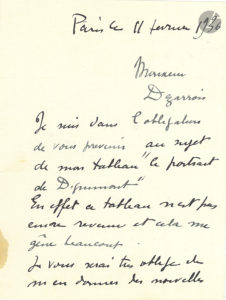 Paris le 11 fevrier 1936
Monsieur
Dezarrois
Je suis dans l'obligation
de vous prevenir au sujet
de mon tableau "le portrait
de Drumont"
En effet ce tableau n'est pas
encore revenu et cela me
gêne beaucoup.
Je vous serai très obligé de
m'en donner des nouvelles